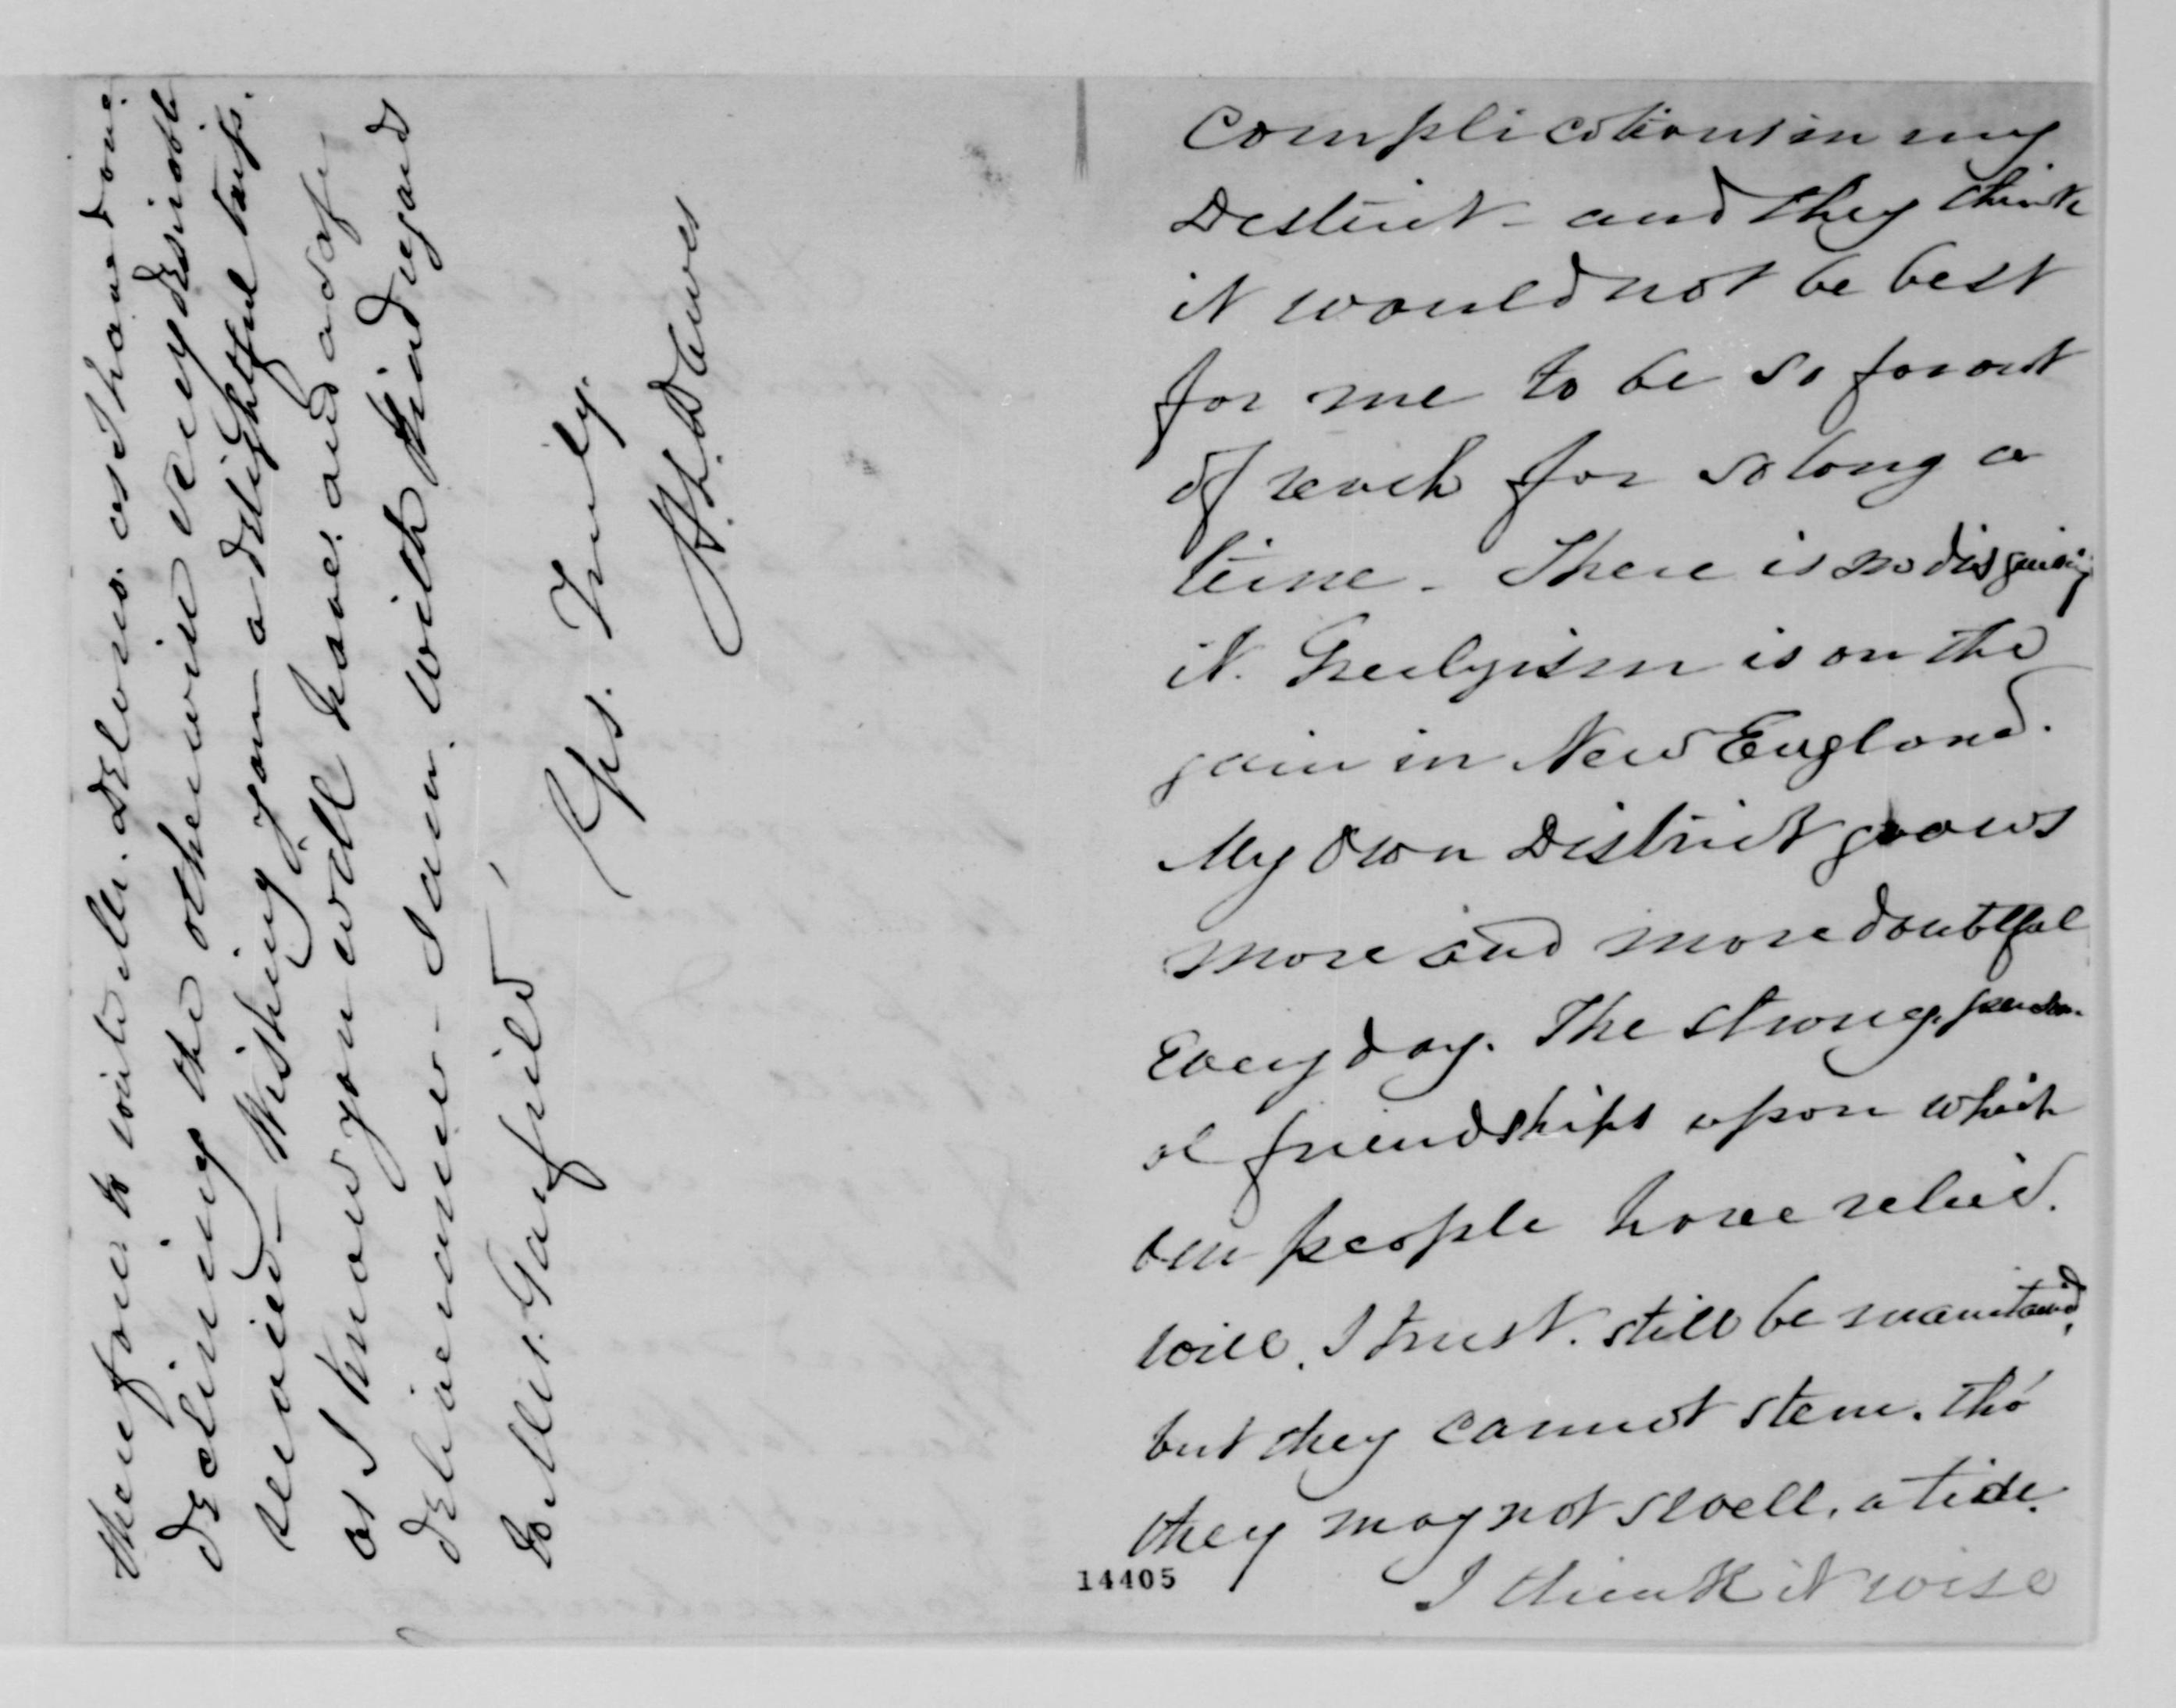 complications in my
District - and they think
it would not be best
for me to be so far out
of reach for so long a
time - There is no disguising
it. Greelyism is on the
gain in New England.
My own District grows
more and more doubtful
Every day. The strong, person-
al friendships upon which
our people have relied.
will, I trust. still be maintaind,
but they cannot stem. tho'
they may not swell, a tide.
I think it wise
14405
therefore to write Mr. Delano. as I have done.
declining the otherwise very desirable
service - Wishing you a delightful trip.
as I know you will have, and a safe
deliverance - I am. with kind regards
to Mrs. Garfield,
Yrs. Truly.
H. L. Dawes